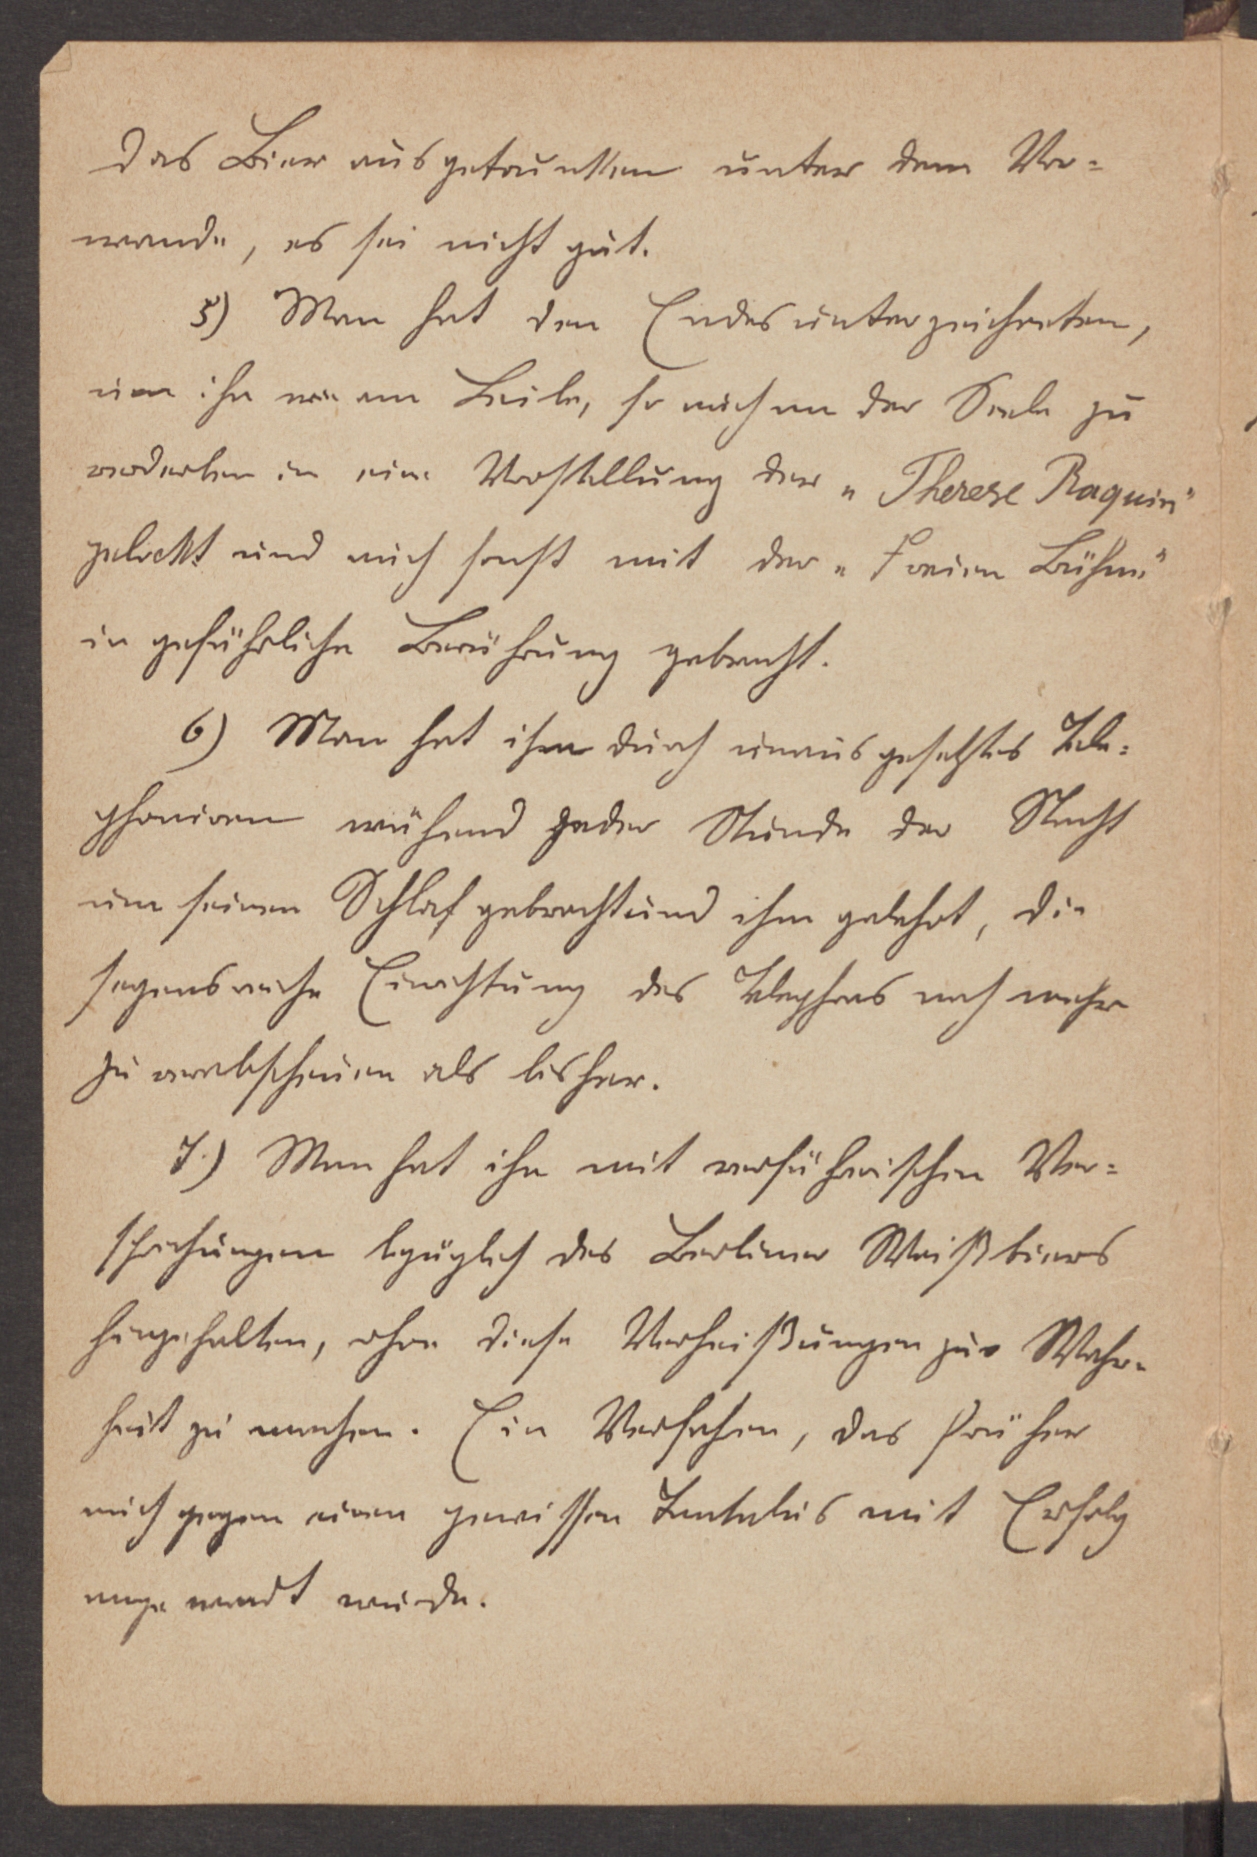 das Bier ausgetrunken unter dem Vor=
wande, es sei nicht gut.
5) Man hat den Endesunterzeichneten,
um ihn wie am Leibe, so auch an der Seele zu
verderben in eine Vorstellung der „Therese Raquin"
gelockt und auch sonst mit der „Freien Bühne"
in gefährliche Berührung gebracht.
6) Man hat ihn durch unausgesetztes Tele=
phoniren während jeder Stunde der Nacht
um seinen Schlaf gebracht und ihm gelehrt, die
segensreiche Einrichtung des Telephons noch mehr
zu verabscheuen als bisher.
7.) Man hat ihn mit verführerischen Ver=
sprechungen bezüglich des Berliner Weißbiers
hingehalten, ohne diese Verheißungen zur Wahr=
heit zu machen. Ein Verfahren, das früher
auch gegen einen gewissen Tantalus mit Erfolg
angewandt wurde.